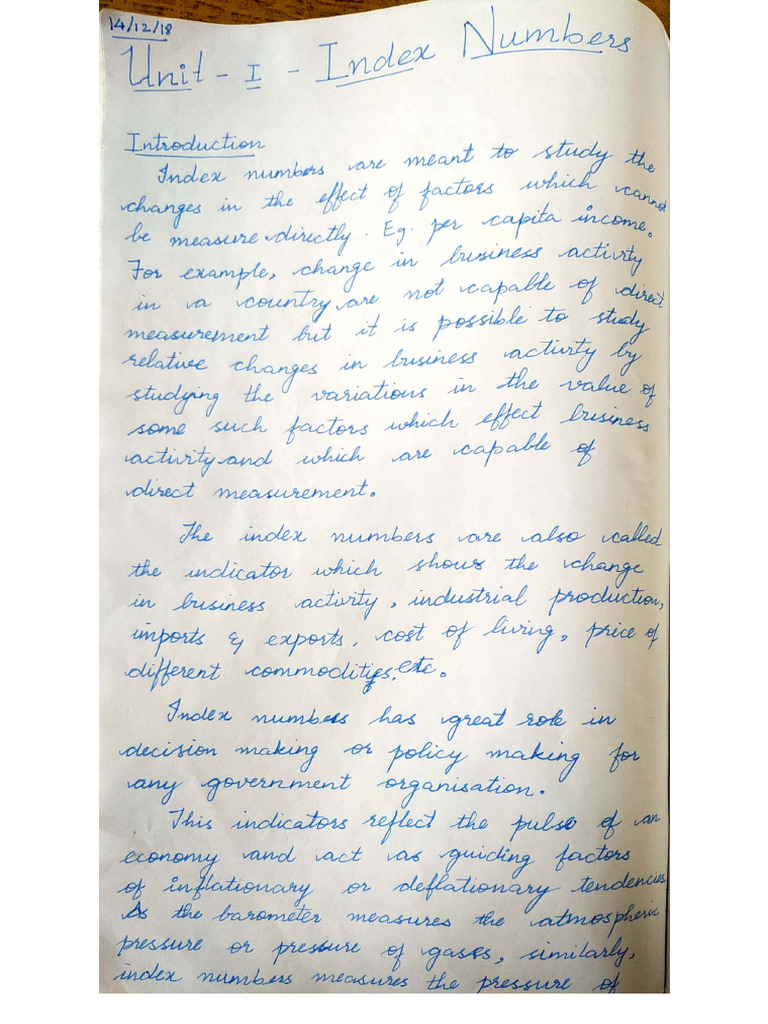 14/12/18
Unit - I - Index Numbers
Introduction
Index numbers are meant to study the
changes in the effect of factors which cannot
be measure directly. Eg. per capita income.
For example, change in business activity
in a country are not capable of direct
measurement but it is possible to study
relative changes in business activity by
studying the variations in the value of
some such factors which effect business
activity and which are capable of
direct measurement.
The index numbers are also called
the indicator which shows the change
in business activity, industrial production,
imports & exports, cost of living, price of
different commodities, etc.
Index numbers has great role in
decision making or policy making for
any government organisation.
This indicators reflect the pulse of an
economy and act as guiding factors
of inflationary or deflationary tendencies.
As the barometer measures the atmospheric
pressure or pressure of gases, similarly,
index numbers measures the pressure of